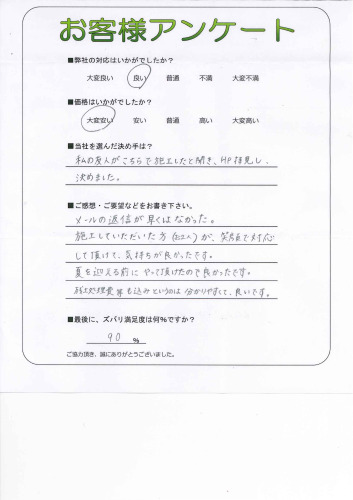 お客様アンケート
■弊社の対応はいかがでしたか？
大変良い 良い 普通 不満 大変不満
■価格はいかがでしたか？
大変安い 安い 普通 高い 大変高い
■当社を選んだ決め手は？
私の友人がこちらで施工したと聞き、HP拝見し、
決めました。
■ご感想・ご要望などをお書き下さい。
メールの返信が早くはなかった。
施工していただいた方が、笑顔で対応
して頂けて、気持ちが良かったです。
夏を迎える前にやって頂けたので良かったです。
残土処理費等も込みというのは分かりやすくて、良いです。
■最後に、ズバリ満足度は何％ですか？
90 ％
ご協力頂き、誠にありがとうございました。